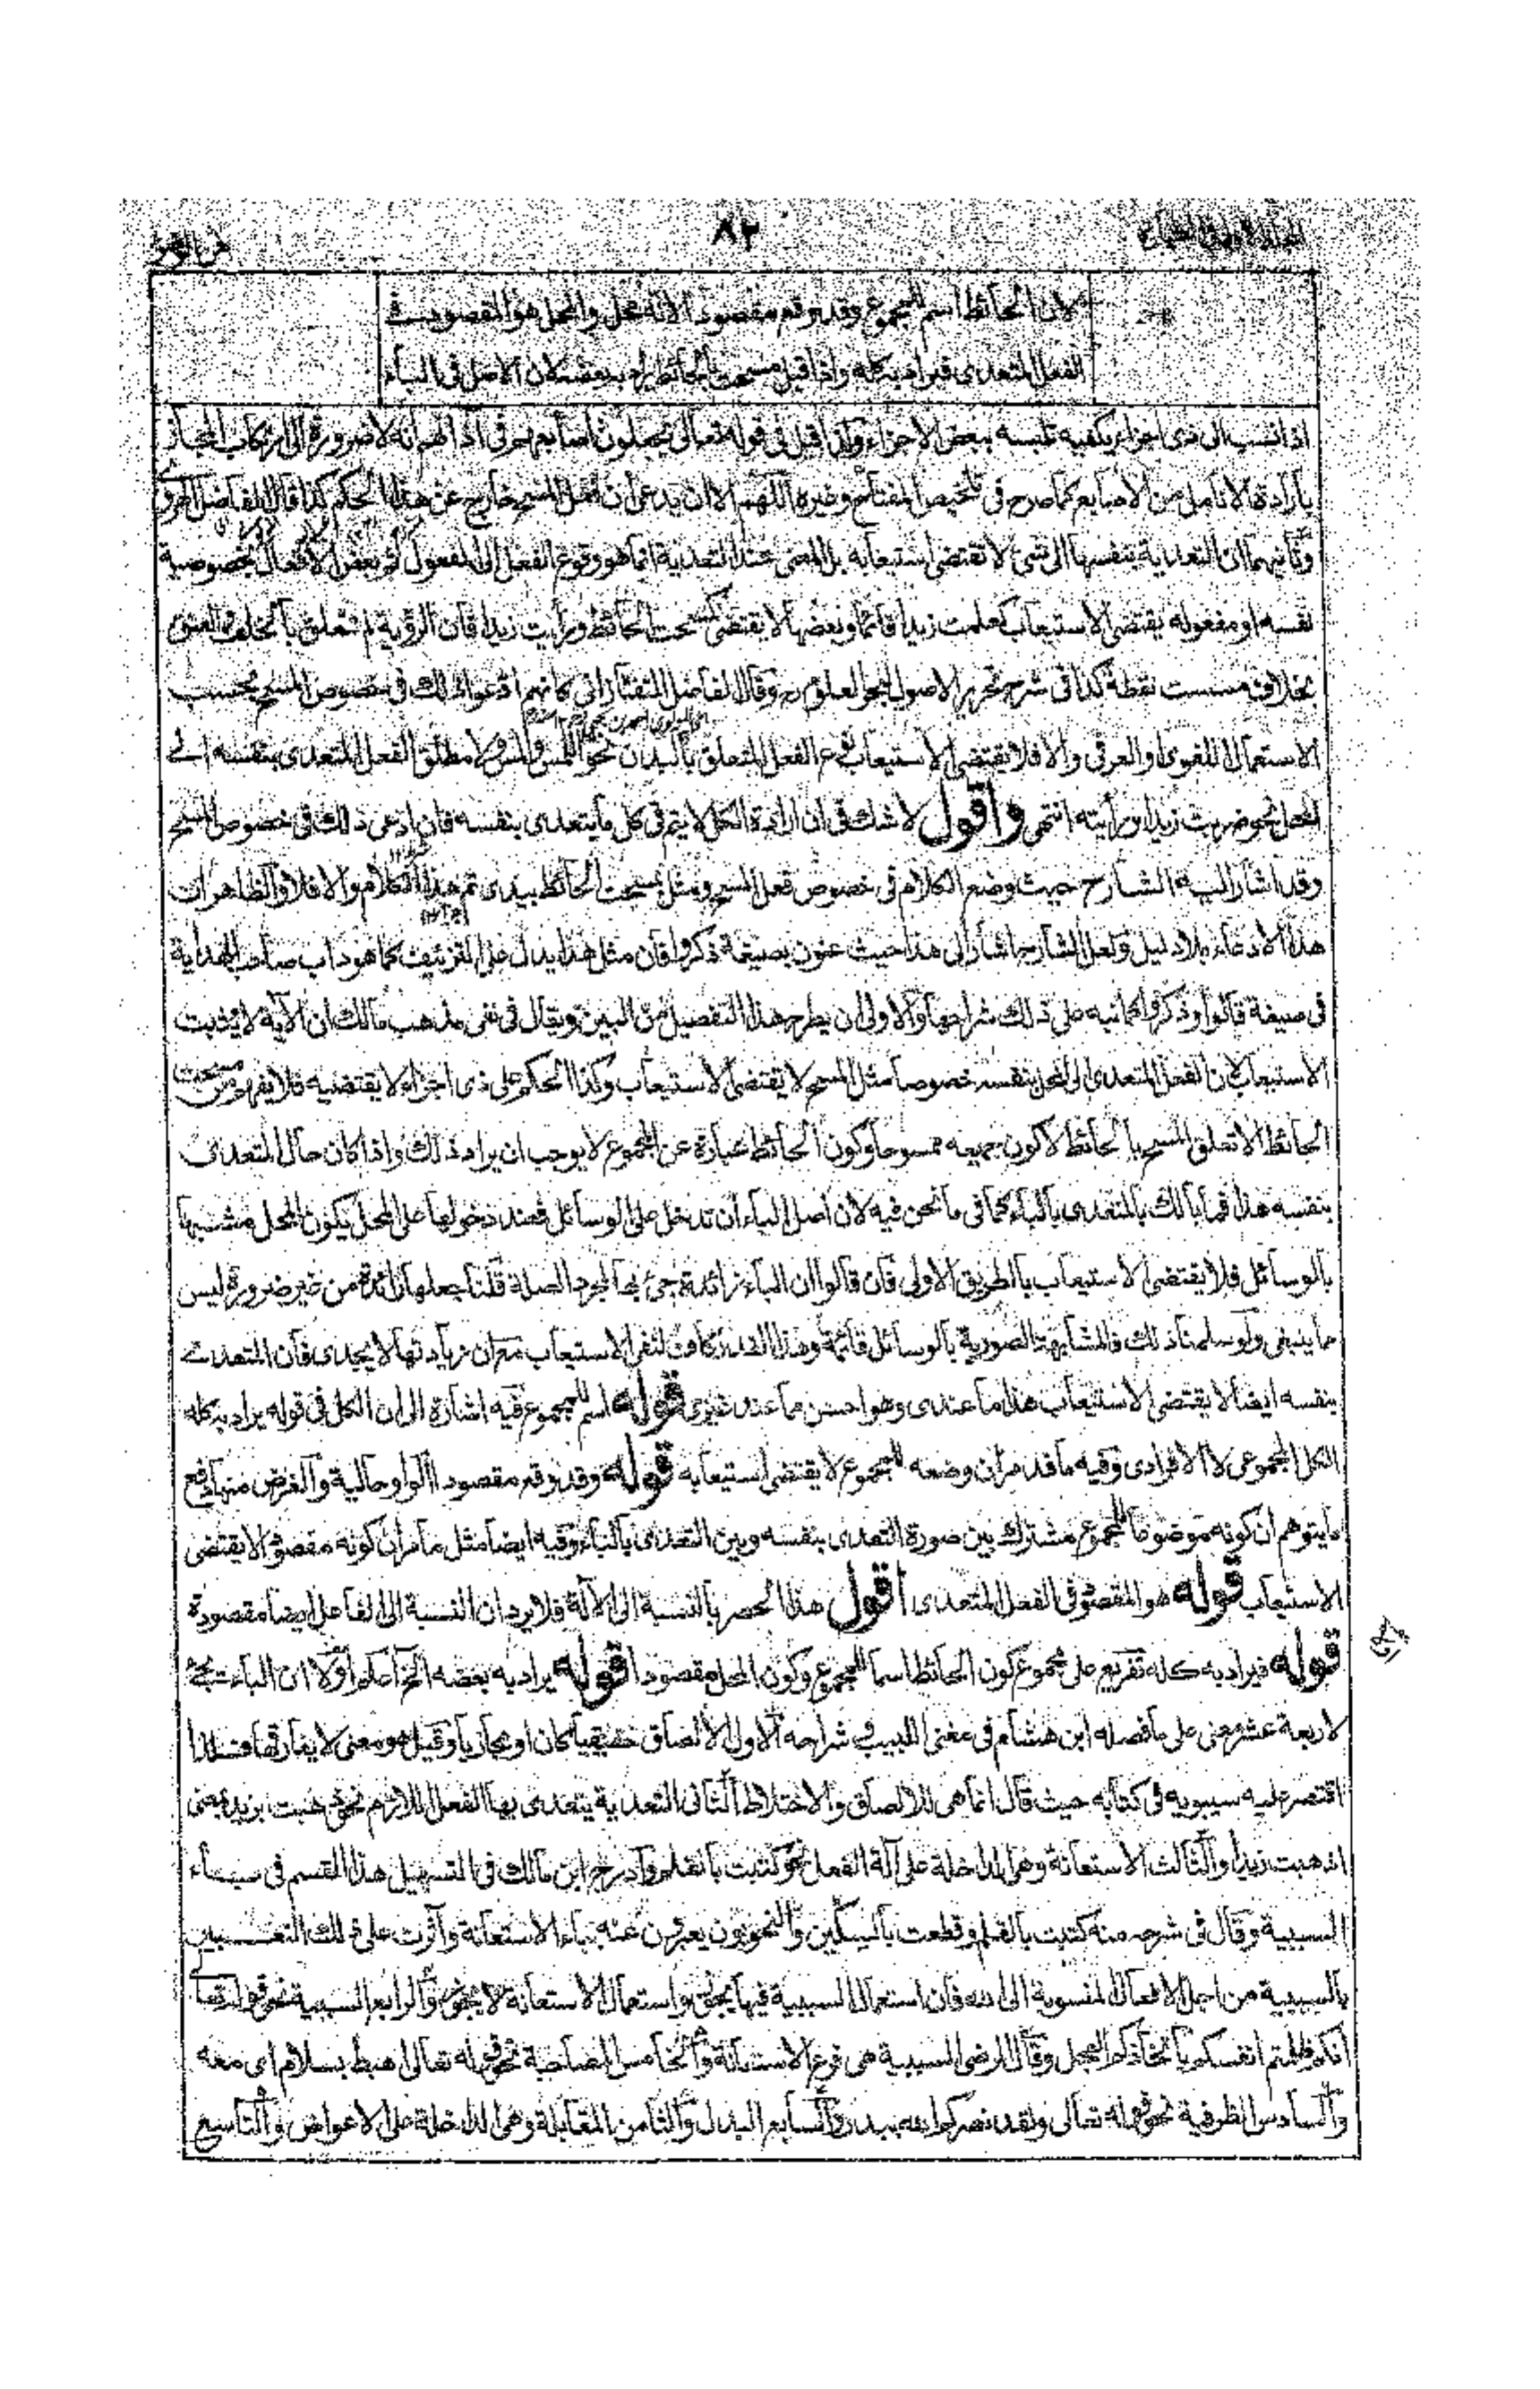 ٨٢
لان الحائط اسم للمجموع وقد وقع مقصودا لانه محل والمحل هو المقصود في
الفعل المتعدى فيراد به كله واذا قيل مسحت بالحائط يراد به بعضه لان الاصل فى الباء
اذا نسب الى ذى اجزاء يكفيه تلبسه ببعض الاجزاء ولذا قيل فى قوله تعالى يجعلون اصابعهم فى اذانهم انه لا ضرورة الى ارتكاب المجاز
بارادة الانامل من الاصابع كما صرح فى تلخيص المفتاح وغيره اللهم الا ان يدعى ان فعل المسح خارج عن هذا الحكم كذا قال الفاضل
وثانيهما ان التعدية بنفسها الى شئ لا تقتضى استيعابه بل المعنى عند التعدية انما هو وقوع الفعل الى المفعول ثم بعض الافعال بخصوصية
نفسه او مفعوله يقتضى الاستيعاب كعلمت زيدا قائما وبعضها لا يقتضى كمسحت الحائط ورأيت زيدا فان الرؤية لم تتعلق بالخلف والعنق
بخلاف مسست نقطة كذا فى شرح تحرير الاصول لبحر العلوم ره وقال الفاضل التفتازانى كانهم ادعوا ذلك فى خصوص المسح بحسب
الاستعمال اللغوى او العرفى والا فلا يقتضى الاستيعاب نوع الفعل المتعلق بالبدن نحو اللمس والمس ولا مطلق الفعل المتعدى بنفسه الى
المحل نحو ضربت زيدا ورأيته انتهى واقول لا شك فى ان ارادة الكل لا يتم فى كل ما يتعدى بنفسه فان ادعى ذلك فى خصوص المسح
وقد اشار اليه الشارح حيث وضع الكلام فى خصوص فعل المسح ومثل بمسحت الحائط بيدى تم هذا الكلام والا فلا والظاهر ان
هذا الادعاء بلا دليل ولعل الشارح اشار الى هذا حيث عنون بصيغة ذكروا فان مثل هذا يدل على التزييف كما هو داب صاحب الهداية
فى صيغة قالوا وذكروا كما نبه على ذلك شراحها والاولى ان يطرح هذا التفصيل من البين ويقال فى نفى مذهب مالك ان الآية لا يثبت
الاستيعاب لان الفعل المتعدى الى المحل بنفسه خصوصا مثل المسح لا يقتضى الاستيعاب وكذا الحكم على ذى اجزاء لا يقتضيه فلا يفهم من مسحت
الحائط الا تعلق المسح بالحائط لا كون جميعه ممسوحا وكون الحائط عبارة عن المجموع لا يوجب ان يراد ذلك واذا كان حال المتعدى
بنفسه هذا فما بالك بالمتعدى بالباء كما فى ما نحن فيه لان اصل الباء ان تدخل على الوسائل فعند دخولها على المحل يكون المحل مشبها
بالوسائل فلا يقتضى الاستيعاب بالطريق الاولى فان قالوا ان الباء زائدة جئ بها لمجرد الصلة قلنا جعلها زائدة من غير ضرورة ليس
مما ينبغى ولو سلمنا ذلك فالمشابهة الصورية بالوسائل قائمة وهذا القدر كاف لنفى الاستيعاب مع ان زيادتها لا يجدى فان المتعدى
بنفسه ايضا لا يقتضى الاستيعاب هذا ما عندى وهو احسن مما عند غيرى قوله اسم للمجموع فيه اشارة الى ان الكل فى قوله يراد به كله
الكل المجموعى لا الافرادى وفيه ما قد مر ان وضعه للمجموع لا يقتضى استيعابه قوله وقد وقع مقصودا الواو حالية والغرض منها دفع
ما يتوهم ان كونه موضوعا للمجموع مشترك بين صورة التعدى بنفسه وبين التعدى بالباء وفيه ايضا مثل ما مر ان كونه مقصودا لا يقتضى
الاستيعاب قوله هو المقصود فى الفعل المتعدى اقول هذا الحصر بالنسبة الى الآلة فلا يرد ان النسبة الى الفاعل ايضا مقصودة
قوله فيراد به كله تفريع على مجموع كون الحائط اسما للمجموع وكون المحل مقصودا قوله يراد به بعضه الخ اعلم اولا ان الباء تجئ
لاربعة عشر معنى على ما فصله ابن هشام فى مغنى اللبيب وشراحه الاول الالصاق حقيقيا كان او مجازيا وقيل هو معنى لا يفارقها فلذا
اقتصر عليه سيبويه فى كتابه حيث قال انما هى للالصاق والاختلاط الثانى التعدية يتعدى بها الفعل اللازم نحو ذهبت بزيد بمعنى
اذهبت زيدا والثالث الاستعانة وهى الداخلة على آلة الفعل نحو كتبت بالقلم وادرج ابن مالك فى التسهيل هذا القسم فى باء
السببية وقال فى شرحه منه كتبت بالقلم وقطعت بالسكين والنحويون يعبرون عنه بباء الاستعانة وآثرت على ذلك التعبير
بالسببية من اجل الافعال المنسوبة الى الله فان استعمال السببية فيها يجوز واستعمال الاستعانة لا يجوز والرابع السببية نحو قوله تعالى
انكم ظلمتم انفسكم باتخاذكم العجل وقال الرضى السببية هى فرع الاستعانة والخامس المصاحبة نحو قوله تعالى اهبط بسلام اى معه
والسادس الظرفية نحو قوله تعالى ولقد نصركم الله ببدر والسابع البدل والثامن المقابلة وهى الداخلة على الاعواض والتاسع